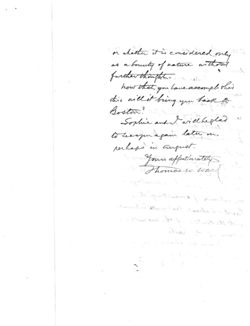 or whether it is considered only
as a bounty of nature without
further thought.
Now that you have accomplished
this will it bring you back to
Boston?
Sophie and I will be glad
to see you again later on
perhaps in August.
Yours affectionately
Thomas W. Ward